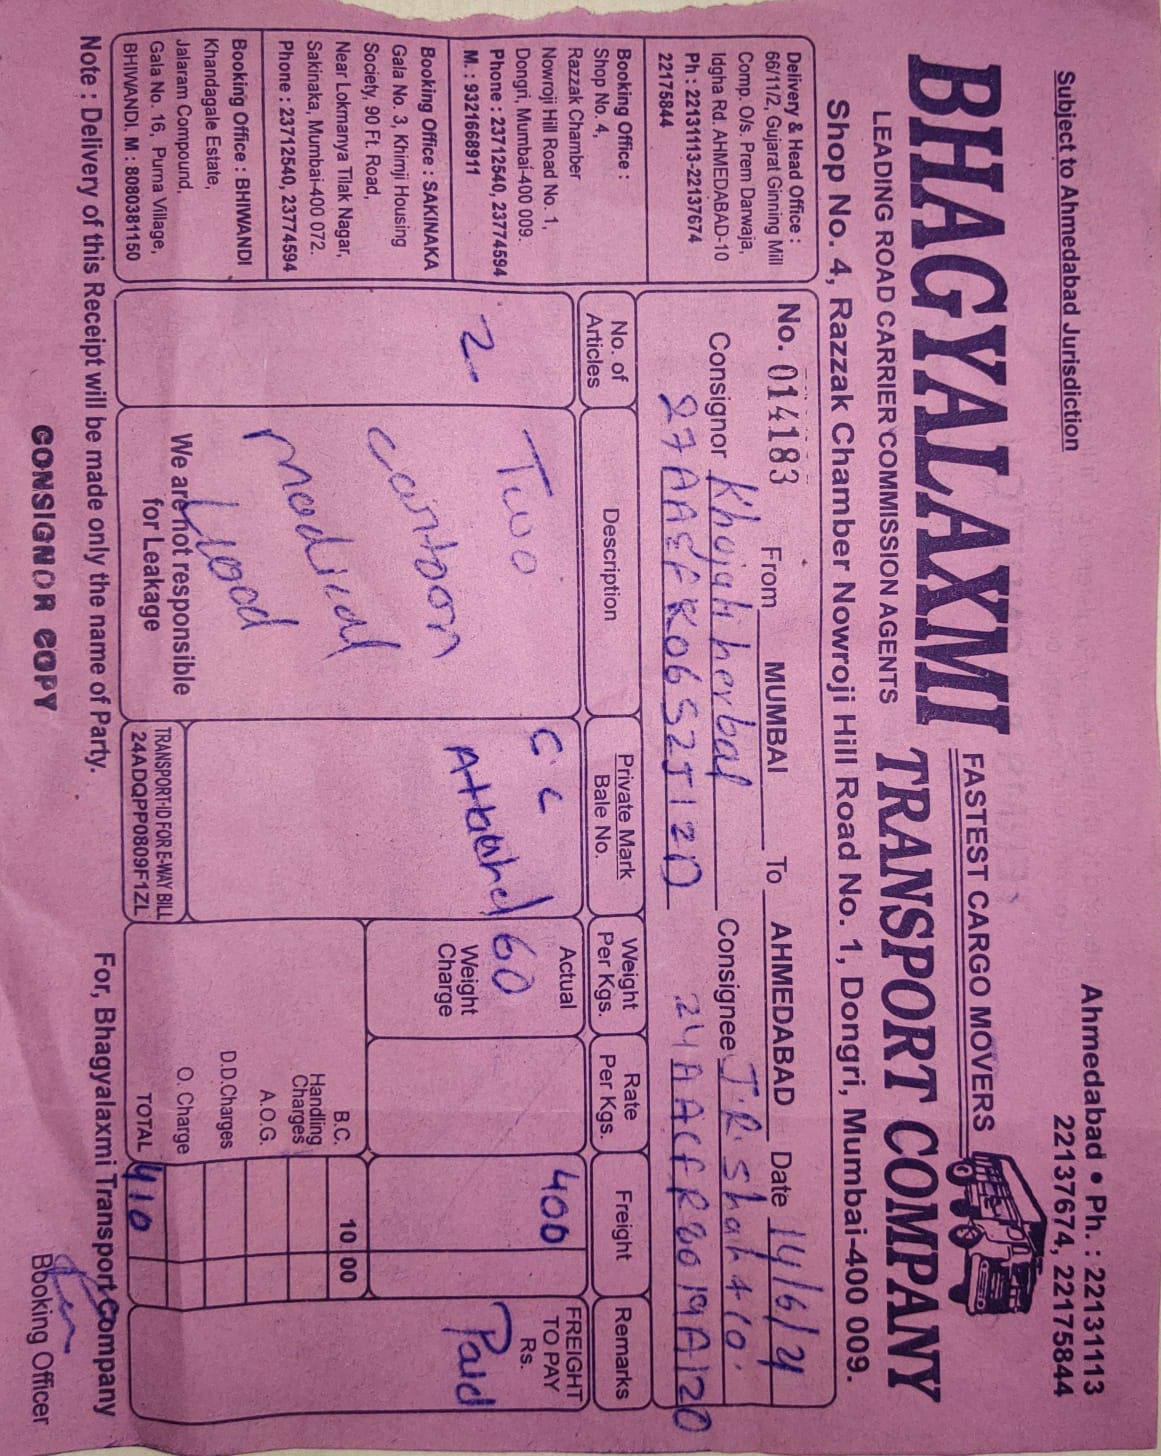 Subject to Ahmedabad Jurisdiction
Ahmedabad • Ph. : 22131113
22137674, 22175844
BHAGYALAXMI TRANSPORT COMPANY
FASTEST CARGO MOVERS
LEADING ROAD CARRIER COMMISSION AGENTS
Shop No. 4, Razzak Chamber Nowroji Hill Road No. 1, Dongri, Mumbai-400 009.
Delivery & Head Office :
66/11/2, Gujarat Ginning Mill
Comp. O/s. Prem Darwaja,
Idgha Rd. AHMEDABAD-10
Ph : 22131113-22137674
22175844
Booking Office :
Shop No. 4,
Razzak Chamber
Nowroji Hill Road No. 1,
Dongri, Mumbai-400 009.
Phone : 23712540, 23774594
M. : 9321668911
Booking Office : SAKINAKA
Gala No. 3, Khimji Housing
Society, 90 Ft. Road,
Near Lokmanya Tilak Nagar,
Sakinaka, Mumbai-400 072.
Phone : 23712540, 23774594
Booking Office : BHIWANDI
Khandagale Estate,
Jalaram Compound,
Gala No. 16, Purna Village,
BHIWANDI. M : 8080381150
No. 014183 From MUMBAI To AHMEDABAD Date 14/6/21
Consignor Khojati herbal Consignee J.R. Shah & Co.
27AAEFK0652J1ZD
No. of Articles
Description
Private Mark
Bale No.
Weight Per Kgs.
Rate Per Kgs.
Freight
Remarks
2
Two
cartoon
medical
We are not responsible
for Leakage
C C
Attached
TRANSPORT-ID FOR E-WAY BILL
24ADQPP0809F1ZL
Actual
60
Weight
Charge
400
FREIGHT
TO PAY
Rs.
Paid
B.C. 10 00
Handling
Charges
A.O.G.
D.D.Charges
O. Charge
TOTAL 410
Note : Delivery of this Receipt will be made only the name of Party.
For, Bhagyalaxmi Transport Company
Booking Officer
CONSIGNOR COPY